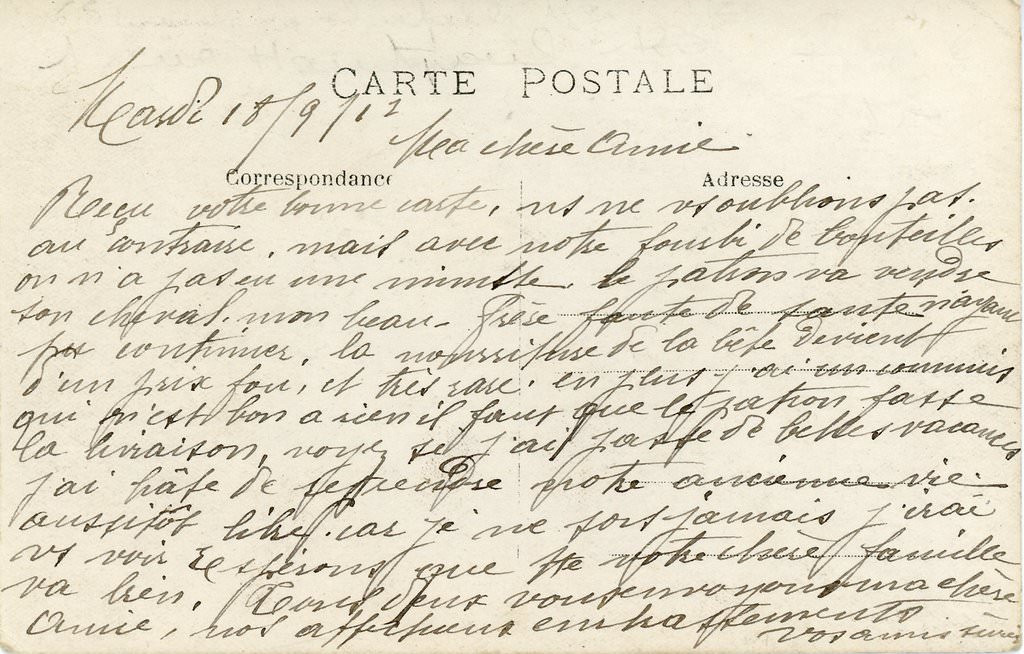 CARTE POSTALE
Mardi 18/9/12
Ma chère Amie
Correspondance
Adresse
Reçu votre bonne carte, ns ne vs oublions pas.
au contraire, mais avec notre fourbi de bouteilles
on n'a pas eu une minute. le patron va vendre
son cheval. mon beau-Frère faute de santé n'ayant
pu continuer, la nourriture de la bête devient
d'un prix fou, et très rare. en plus j'ai un commis
qui n'est bon a rien il faut que le patron fasse
la livraison, voyez si j'ai passé de belles vacances
j'ai hâte de reprendre notre ancienne vie.
aussitôt libre. car je ne sors jamais j'irai
vs voir Espérons que tte votre chère famille
va bien. Tous deux vous envoyons ma chère
Amie, nos affectueux embrassements
vos amis sincères